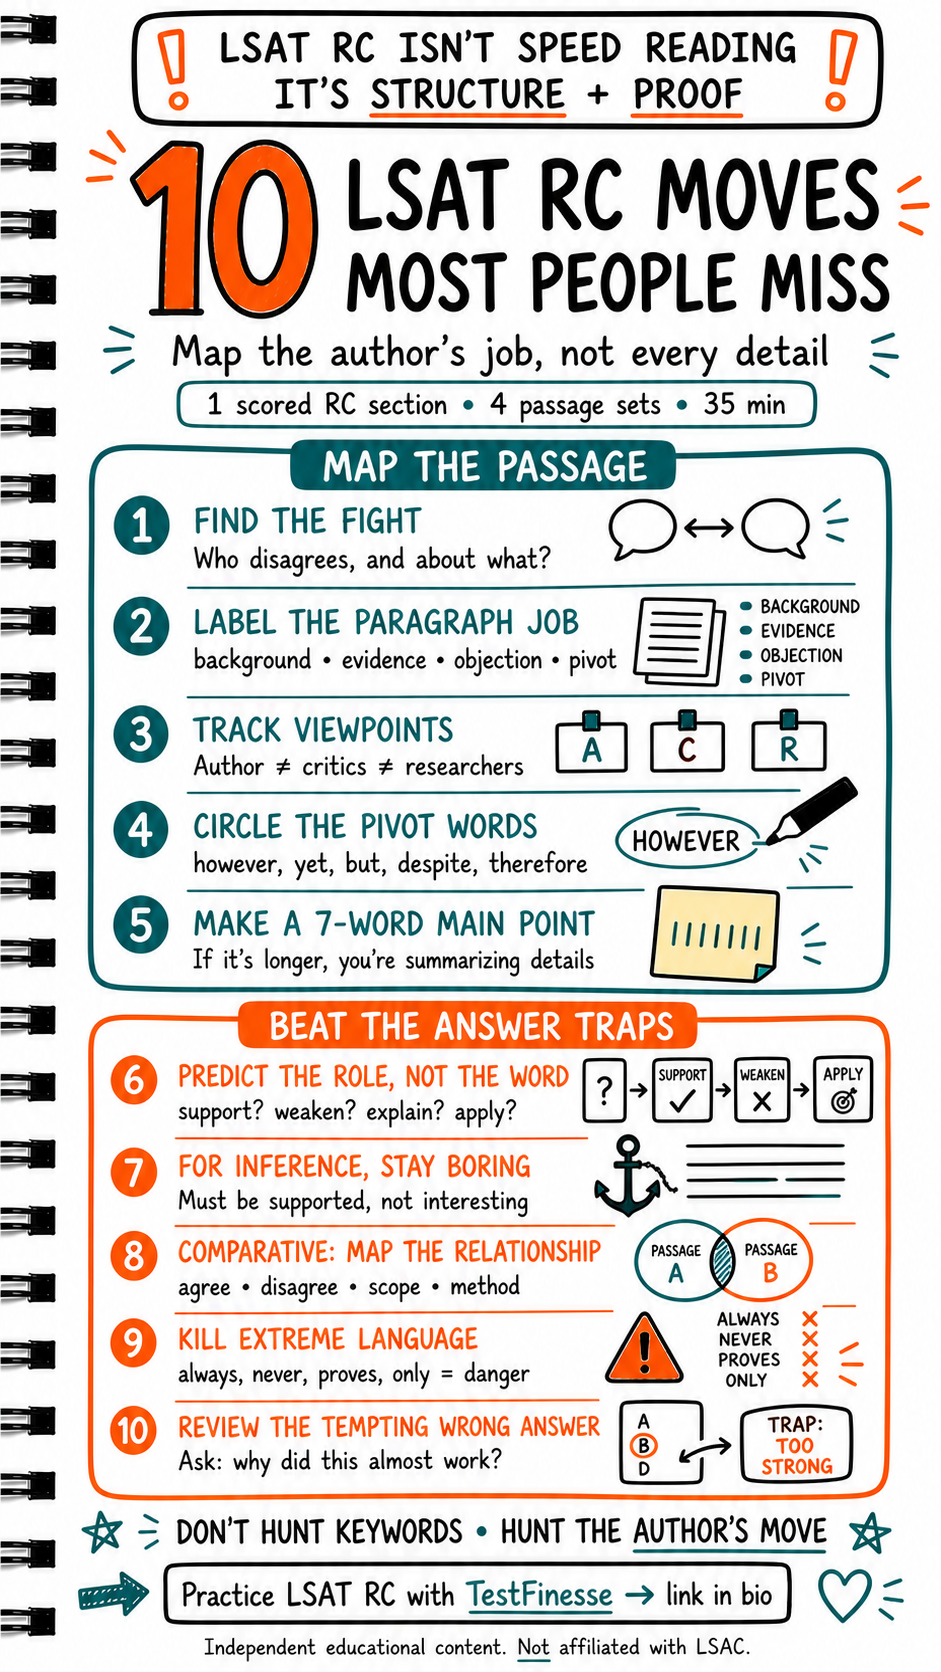 LSAT RC ISN'T SPEED READING
IT'S STRUCTURE + PROOF
10 LSAT RC MOVES
MOST PEOPLE MISS
Map the author's job, not every detail
1 scored RC section • 4 passage sets • 35 min
MAP THE PASSAGE
1 FIND THE FIGHT
Who disagrees, and about what?
2 LABEL THE PARAGRAPH JOB
background • evidence • objection • pivot
• BACKGROUND
• EVIDENCE
• OBJECTION
• PIVOT
3 TRACK VIEWPOINTS
Author ≠ critics ≠ researchers
A C R
4 CIRCLE THE PIVOT WORDS
however, yet, but, despite, therefore
HOWEVER
5 MAKE A 7-WORD MAIN POINT
If it's longer, you're summarizing details
BEAT THE ANSWER TRAPS
6 PREDICT THE ROLE, NOT THE WORD
support? weaken? explain? apply?
? → SUPPORT → WEAKEN → APPLY
7 FOR INFERENCE, STAY BORING
Must be supported, not interesting
8 COMPARATIVE: MAP THE RELATIONSHIP
agree • disagree • scope • method
PASSAGE
A
PASSAGE
B
9 KILL EXTREME LANGUAGE
always, never, proves, only = danger
!
ALWAYS ×
NEVER ×
PROVES ×
ONLY ×
10 REVIEW THE TEMPTING WRONG ANSWER
Ask: why did this almost work?
A
B
D
TRAP:
TOO
STRONG
DON'T HUNT KEYWORDS • HUNT THE AUTHOR'S MOVE
Practice LSAT RC with TestFinesse → link in bio
Independent educational content. Not affiliated with LSAC.